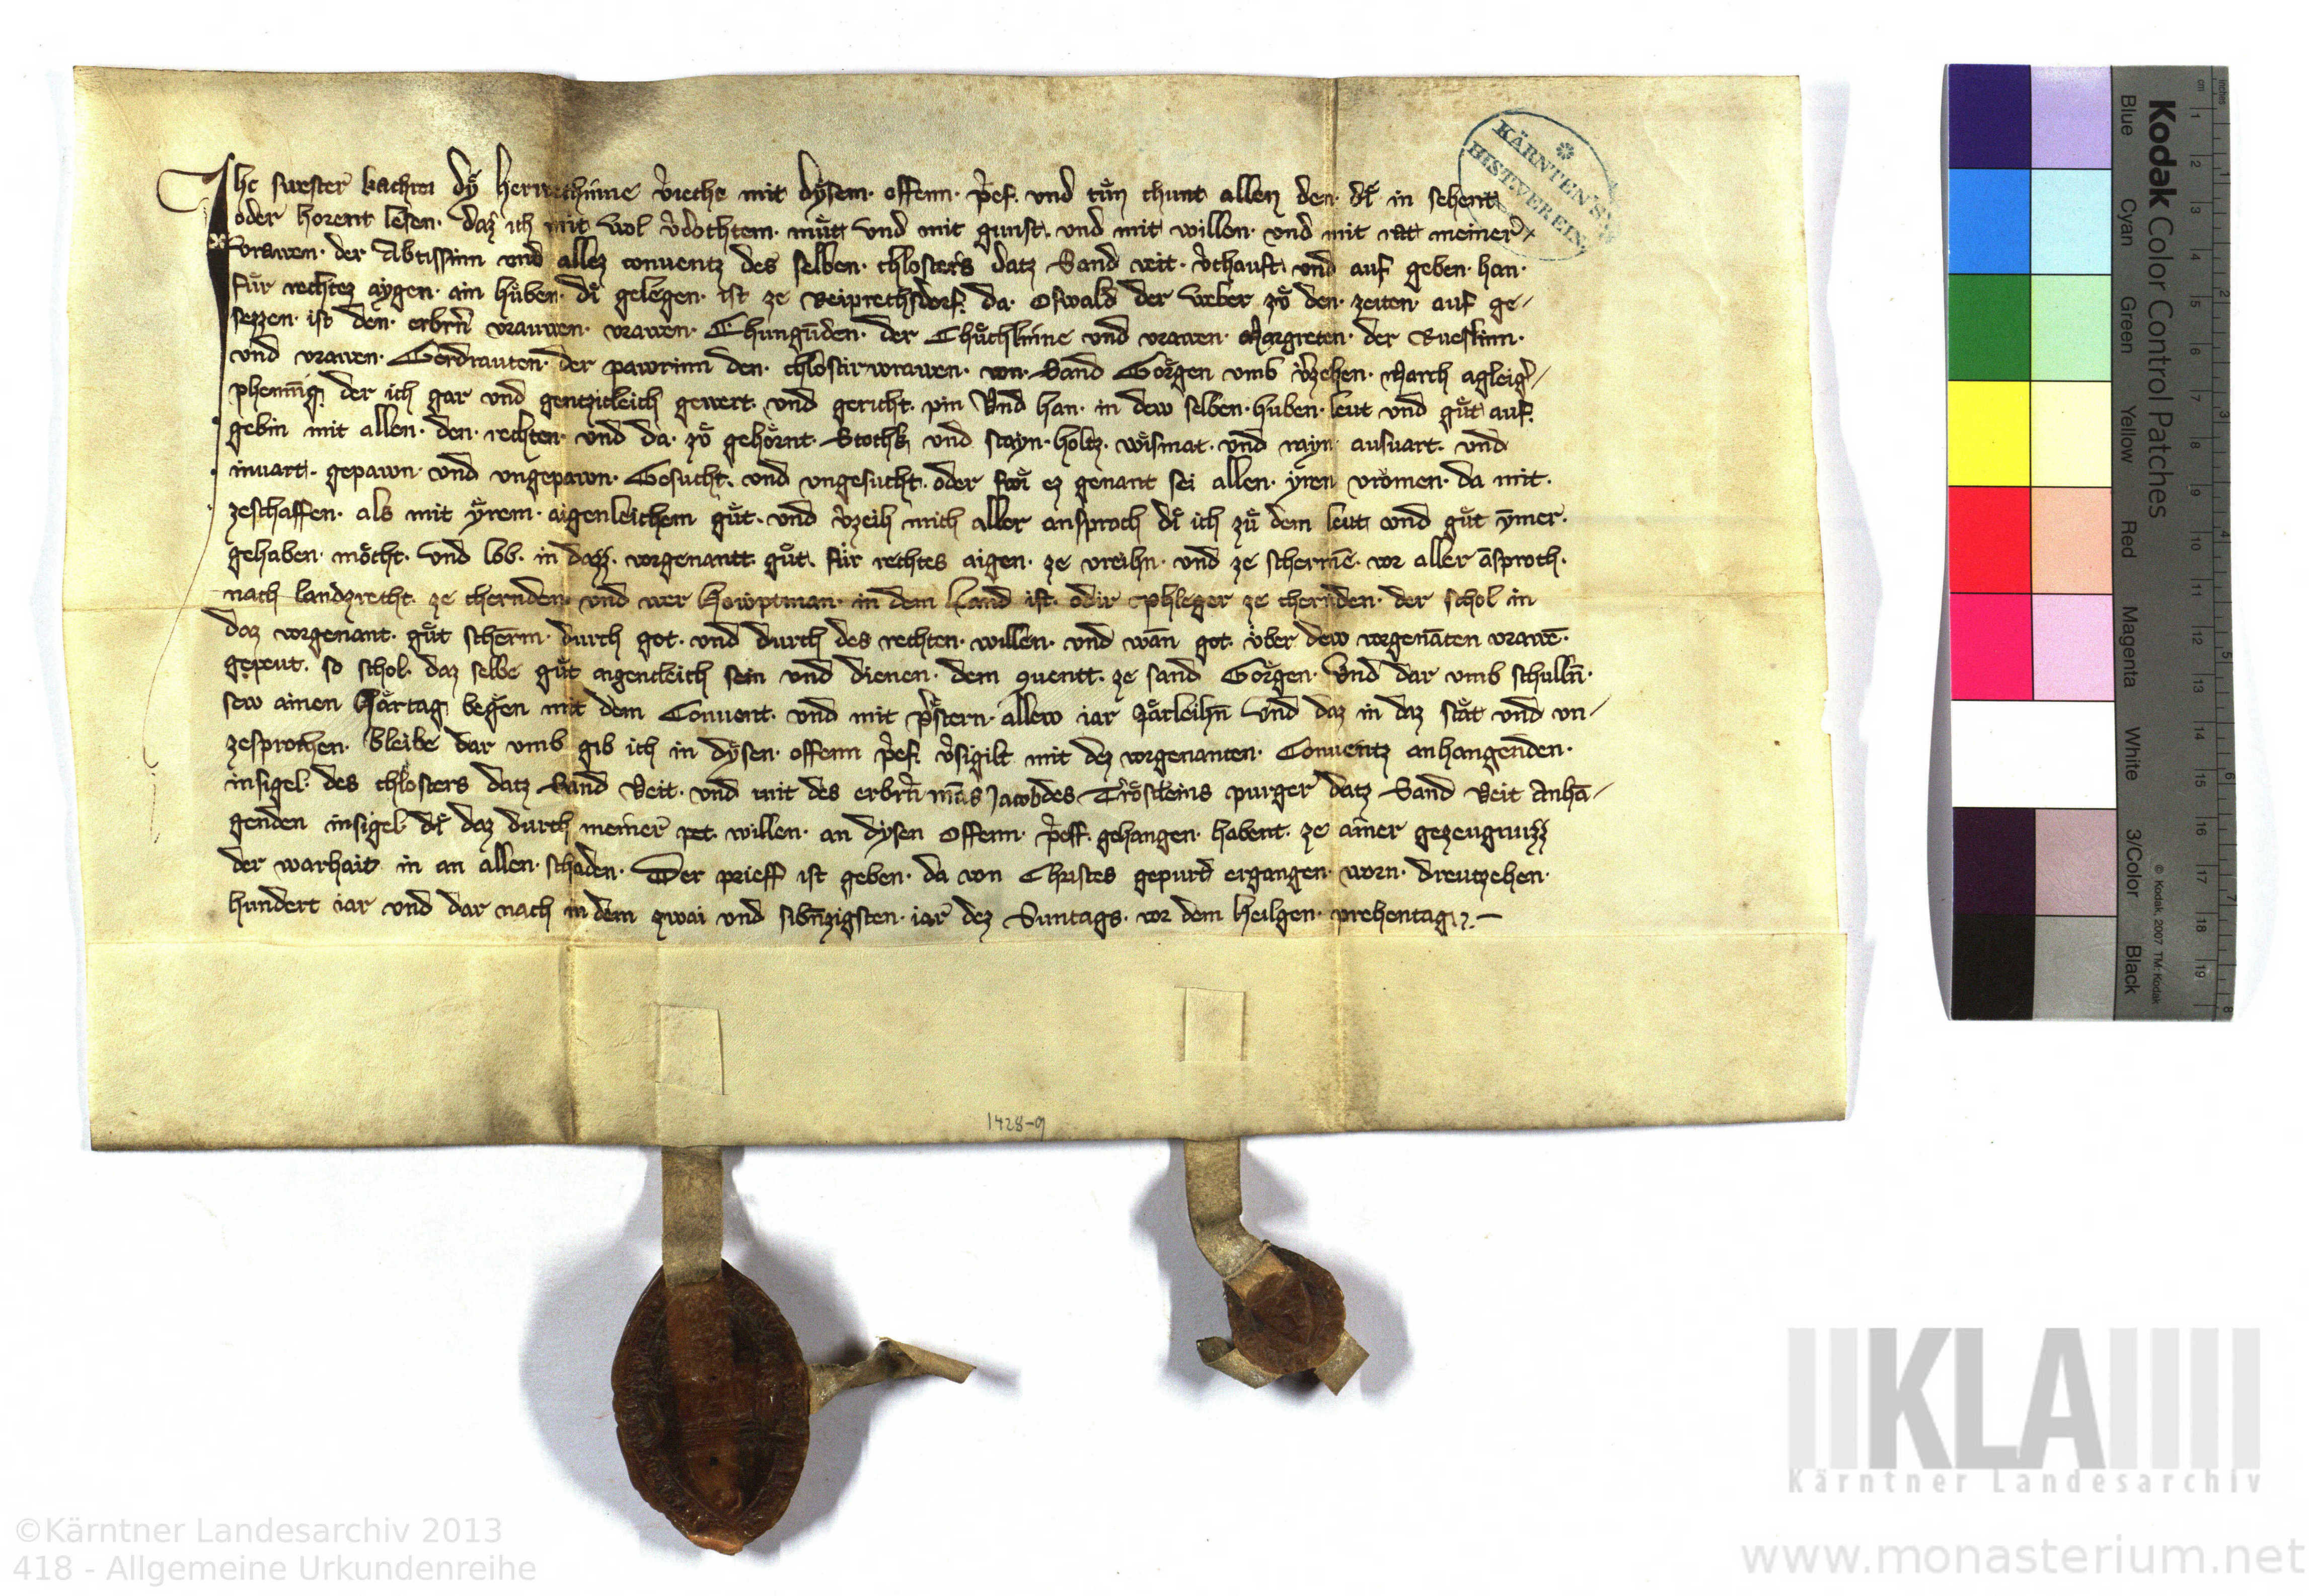 Ihc swester kathrei dÿ herwethinne v̓rieche mit dÿsem offenn pͥef und tuͤn chunt allen den di in sehent
oder horent lesen daz ich mit wol v̓dochtem muͤt und mit gunst und mit willen und mit rat meiner
vrawen der Abtissinn und allez conventz des selben chlosters datz Sand veit v̓chauft und auf geben han
fuͤr rechtez aygen ain huͤben di gelegen ist ze Reiprechtsdorf da Oswald der weber zuͦ den zeiten auf ge
sezzen ist den erbrn̄ vrauwen vrawen Chungūden der Chuͤchlinne und vrawen Margreten der
und vrawen Gerdrauten der pawrinn den chlostirwrawen von Sand Goͤrgen umb v̓zehen March agleig̓
phenni̅g der ich gar und gentzicleich gewert und gericht pin Und han in dew selben huben leut und guͤt auf
gebin mit allen den rechten und da zuͦ gehoͤrnt Stockh und stayn holtz wismat und rayn ausvart und
invart gepawn und ungepawn Gesucht und ungesucht oder swi ez genant sei allen yren vromen da mit
zeschaffen als mit yrem aigenleichem guͤt und v̓zeih mich aller ansproch di ich zuͦ dem leut und guͤt ȳmer
gehaben moͤcht und lob in daz vorgenantt guͤt fuͤr rechtes aigen ze vreihn und ze schermē vor aller āsproch
nach landzrecht ze chernden und wer howptman in dem Land ist odir phleger ze chernden der schol in
daz vorgenant guͤt scherm durch got und durch des rechten willen und wān got uͤber dew vorgenāten vrawē
gepeut so schol daz selbe guͤt aigencleich sein und dienen dem 9uentt ze sand Goͤrgen Und dar umb schulln̄
sew ainen Jaͤrtag begen mit dem Convent und mit pͥstern allew iar Jaͤrleihn̄ Und daz in daz staͤt und un
zesprochen bleibe dar umb gib ich in dÿsen offenn pͥef v̓sigilt mit dez vorgenanten Conventz anhangenden
insigel des chlosters datz Sand Veit und mit des erbrn̄ māns Jacobdes Troͤstleins purger datz Sand Veit Anhā
genden insigel di daz durch meiner pet willen an dÿsen offenn pͥeff gehangen habent ze ainer gezeugnuzz
der warhait in an allen schaden Der prieff ist geben da von Christes gepurd ergangen worn dreutzehen
hundert iar und dar nach in dem zwai und sibn̄zigsten iar dez Suntags vor dem heilgen prehentag
KÄRNTEN'S
HIST.VEREIN.
1428-9
Kodak Color Control Patches
Blue Cyan Green Yellow Red Magenta White 3/Color Black
© Kodak, 2007 TM: Kodak
cm 1 2 3 4 5 6 7 8 9 10 11 12 13 14 15 16 17 18 19
inches 1 2 3 4 5 6 7 8
KLA
Kärntner Landesarchiv
©Kärntner Landesarchiv 2013
418 - Allgemeine Urkundenreihe
www.monasterium.net